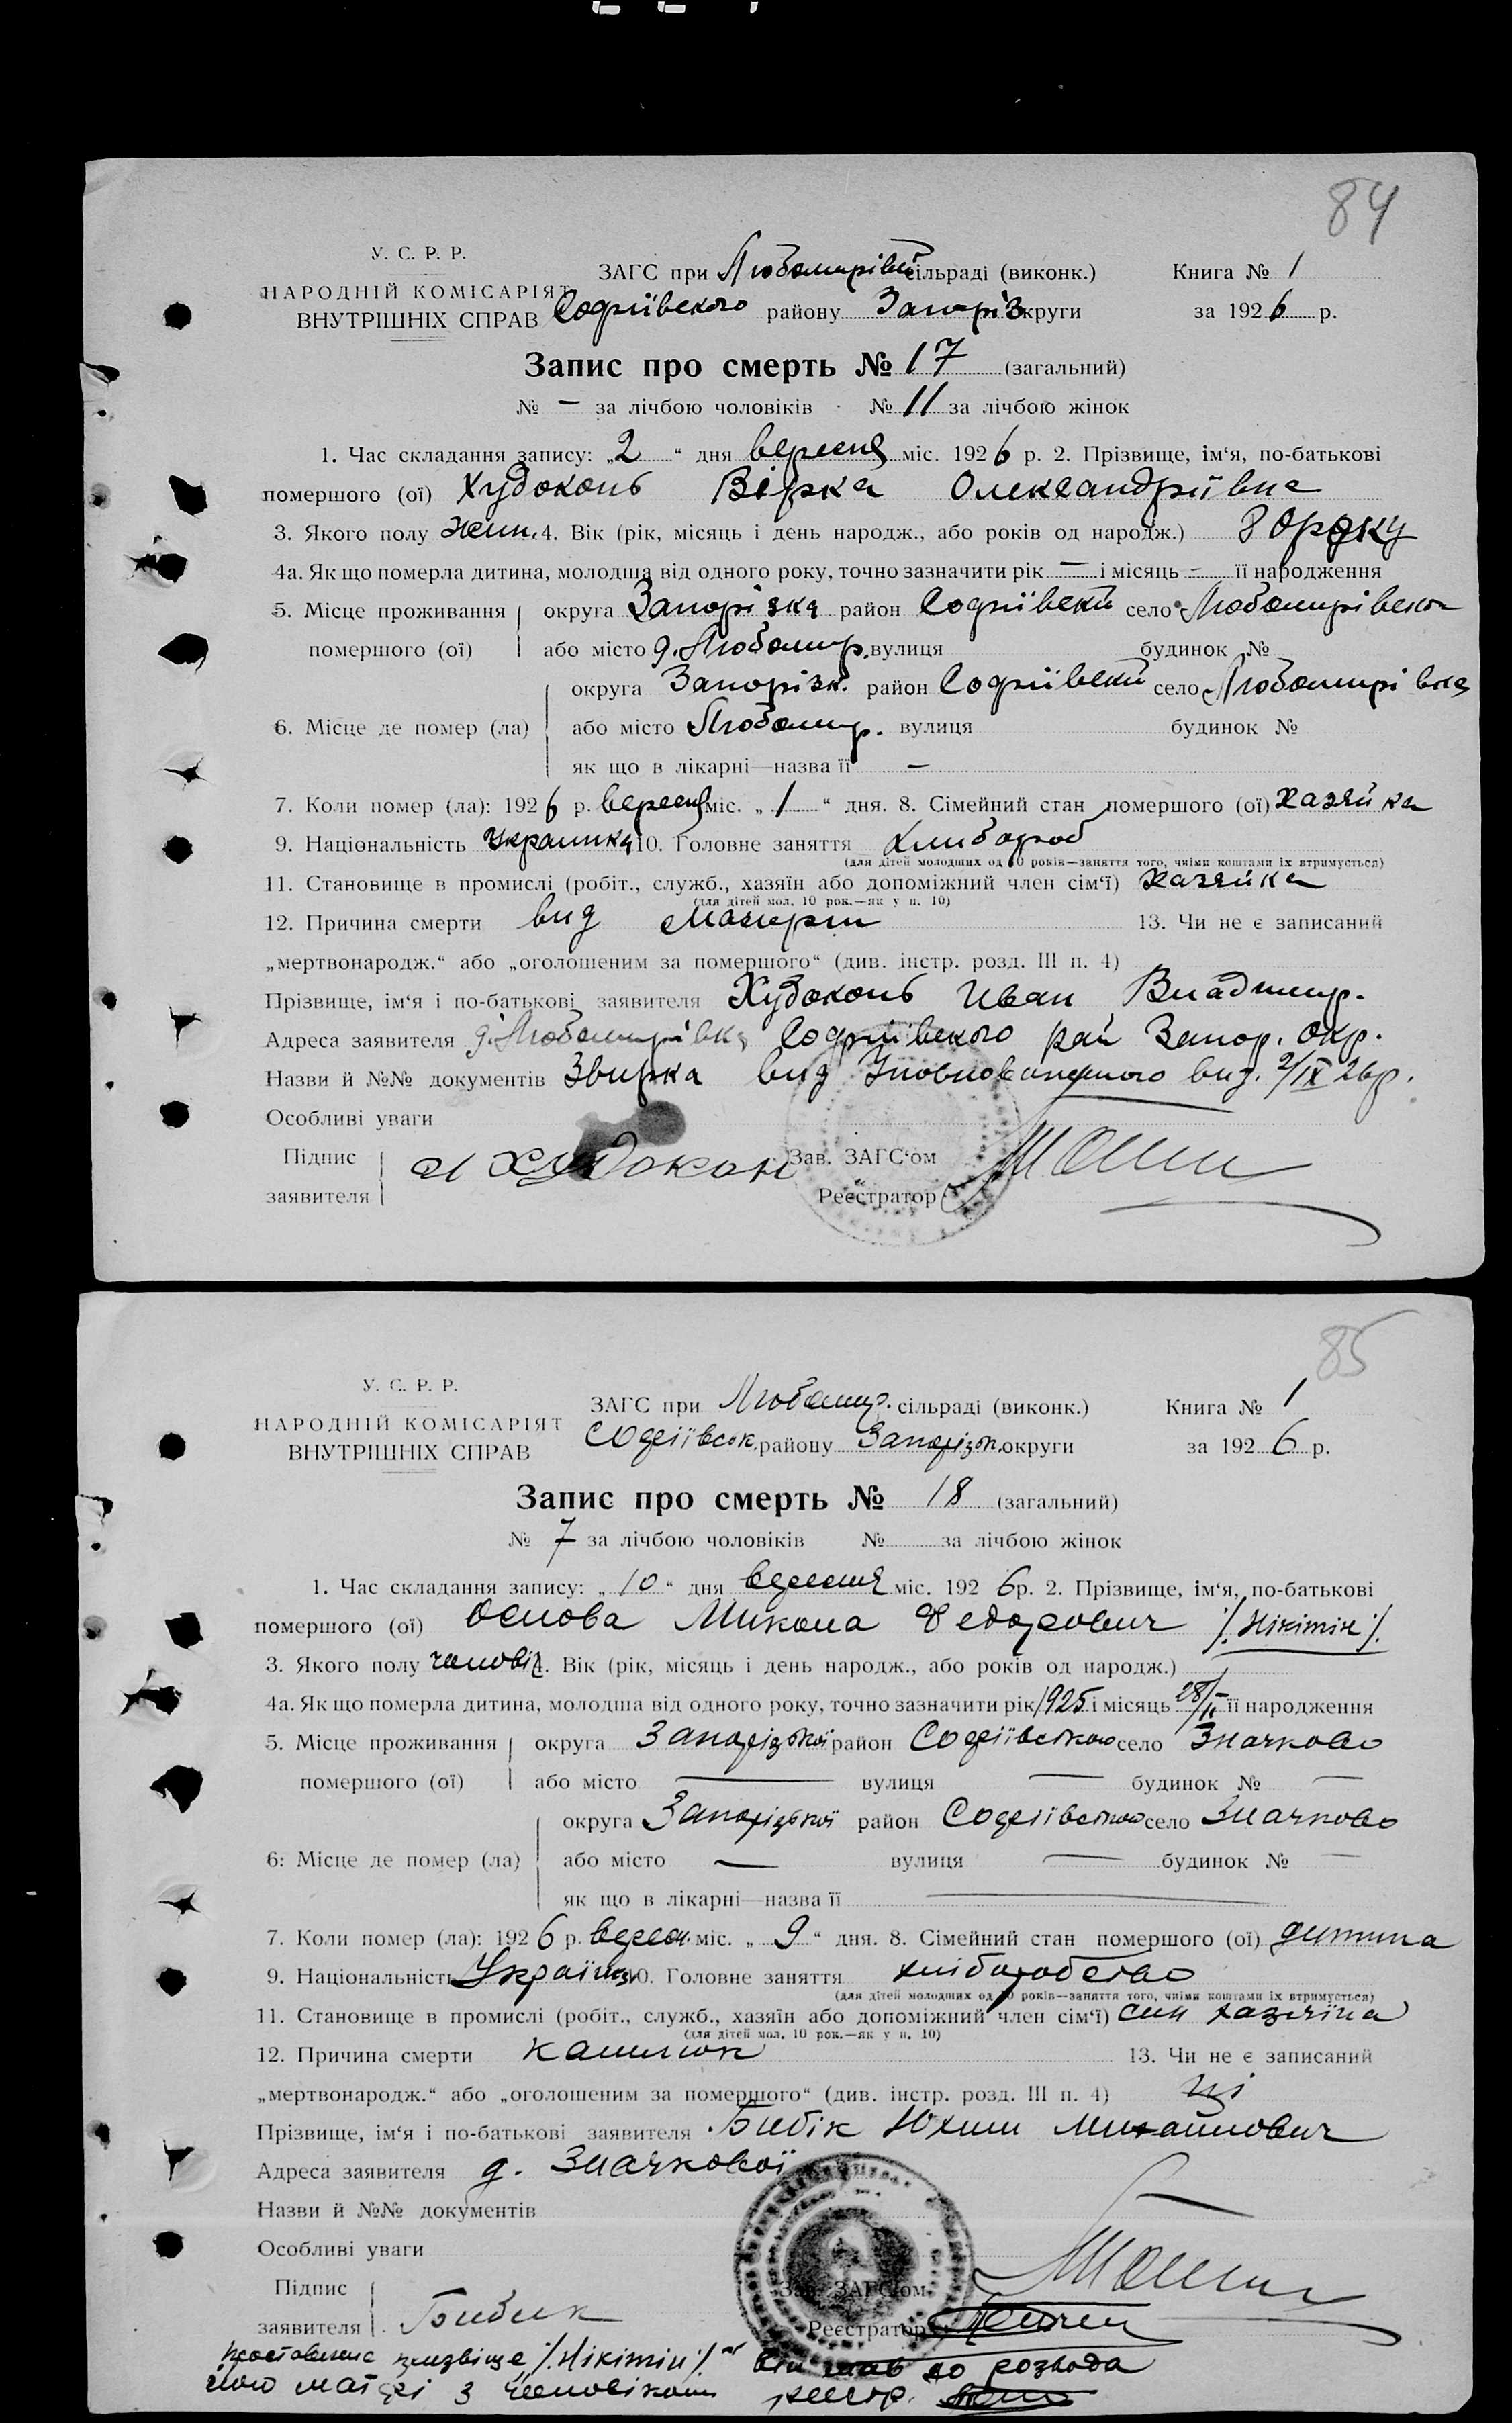 84
У. С. Р. Р.
НАРОДНІЙ КОМІСАРІЯТ
ВНУТРІШНІХ СПРАВ
ЗАГС при Любомирівс сільраді (виконк.) Книга № 1
Софіївського району Запоріз округи за 1926 р.
Запис про смерть № 17 (загальний)
№ — за лічбою чоловіків № 11 за лічбою жінок
1. Час складання запису: „2“ дня вересня міс. 1926 р. 2. Прізвище, ім‘я, по-батькові
помершого (ої) Худоконь Вірка Олександріївна
3. Якого полу жин. 4. Вік (рік, місяць і день народж., або років од народж.)
4а. Як що померла дитина, молодша від одного року, точно зазначити рік — і місяць - її народження
5. Місце проживання округа Запорізка район Софіївский село Любомирівской
помершого (ої) або місто д. Любомир. вулиця будинок №
округа Запорізк. район Софіївский село Любомирівка
6. Місце де помер (ла) або місто Любомир. вулиця будинок №
як що в лікарні—назва її —
7. Коли помер (ла): 1926 р. вересня міс. „1“ дня. 8. Сімейний стан помершого (ої) хазяйка
9. Національність Украинка 10. Головне заняття хлибороб
(для дітей молодших од 10 років—заняття того, чиїми коштами їх втримується)
11. Становище в промислі (робіт., служб., хазяїн або допоміжний член сім‘ї) хазяйка
(для дітей мол. 10 рок.—як у п. 10)
12. Причина смерти вид 13. Чи не є записаний
„мертвонародж.“ або „оголошеним за помершого“ (див. інстр. розд. III п. 4)
Прізвище, ім‘я і по-батькові заявителя Худоконь Иван Владимир.
Адреса заявителя д. Любомирівка Софіівского рай Запор. Окр.
Назви й №№ документів вид 2/IX 26р.
Особливі уваги
Підпис И Худокон Зав. ЗАГС‘ом
заявителя Реєстратор
85
У. С. Р. Р.
НАРОДНІЙ КОМІСАРІЯТ
ВНУТРІШНІХ СПРАВ
ЗАГС при Любомир. сільраді (виконк.) Книга № 1
Софіївськ. району Запорізьк. округи за 1926 р.
Запис про смерть № 18 (загальний)
№ 7 за лічбою чоловіків № за лічбою жінок
1. Час складання запису: „10“ дня вересня міс. 1926 р. 2. Прізвище, ім‘я, по-батькові
помершого (ої) Основа Микола Федорович /. Нікітін /.
3. Якого полу чоловіч. 4. Вік (рік, місяць і день народж., або років од народж.)
4а. Як що померла дитина, молодша від одного року, точно зазначити рік 1925 і місяць її народження
5. Місце проживання округа Запорізької район Софіївського село Значково
помершого (ої) або місто — вулиця — будинок № —
округа Запорізької район Софіївського село Значково
6: Місце де помер (ла) або місто — вулиця — будинок № —
як що в лікарні—назва її —
7. Коли помер (ла): 1926 р. вересн. міс. „9“ дня. 8. Сімейний стан помершого (ої) дитина
9. Національність Україн. 10. Головне заняття хліборобство
(для дітей молодших од 10 років—заняття того, чиїми коштами їх втримується)
11. Становище в промислі (робіт., служб., хазяїн або допоміжний член сім‘ї) син хазяїна
(для дітей мол. 10 рок.—як у п. 10)
12. Причина смерти кашлюк 13. Чи не є записаний
„мертвонародж.“ або „оголошеним за помершого“ (див. інстр. розд. III п. 4) ні
Прізвище, ім‘я і по-батькові заявителя Бибік Юхим Михайлович
Адреса заявителя д. Значкової
Назви й №№ документів
Особливі уваги
Підпис Бибик Зав. ЗАГС‘ом
заявителя Реєстратор
призвіще /. Нікітін /. він мав до розвода
його матері з чоловіком